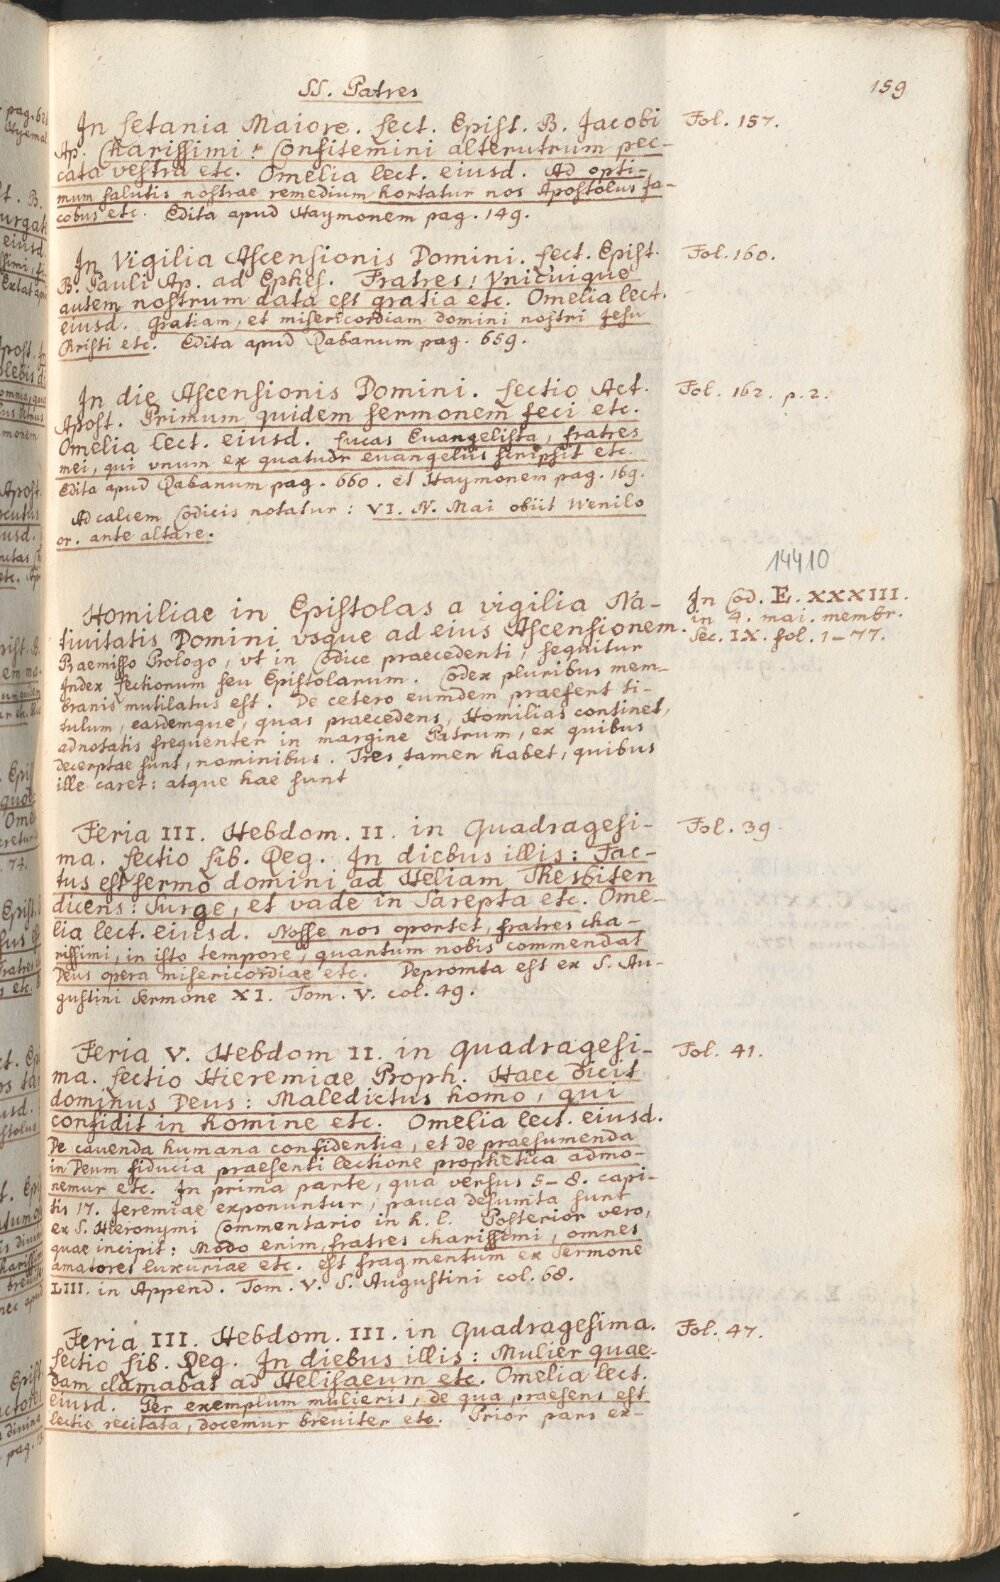 SS. Patres
159
In Letania Maiore. Lect. Epist. B. Jacobi
Fol. 157.
Ap. Charissimi: Confitemini alterutrum pec-
cata vestra etc. Omelia lect. eiusd. Ad opti-
mum salutis nostrae remedium hortatur nos Apostolus Ja-
cobus etc. Edita apud Haymonem pag. 149.
In Vigilia Ascensionis Domini. Lect. Epist.
Fol. 160.
B. Pauli Ap. ad Ephes. Fratres: Vnicuique
autem nostrum data est gratia etc. Omelia lect.
eiusd. Gratiam, et misericordiam Domini nostri Jesu
Christi etc. Edita apud Rabanum pag. 659.
In die Ascensionis Domini. Lectio Act.
Fol. 162. p. 2.
Apost. Primum quidem sermonem feci etc.
Omelia lect. eiusd. Lucas Euangelista, fratres
mei, qui vnum ex quatuor euangeliis scripsit etc.
Edita apud Rabanum pag. 660. et Haymonem pag. 169.
Ad calcem Codicis notatur: VI. N. Mai obiit Wenilo
or. ante altare.
14410
Homiliae in Epistolas a vigilia Na-
In Cod. E. XXXIII.
tiuitatis Domini vsque ad eius Ascensionem.
in 4. mai. membr.
Sec. IX. fol. 1-77.
Praemisso Prologo, vt in Codice praecedenti, sequitur
Index Lectionum seu Epistolarum. Codex pluribus mem-
branis mutilatus est. De cetero eumdem praesert ti-
tulum, easdemque, quas praecedens, Homilias continet,
adnotatis frequenter in margine Patrum, ex quibus
decerptae sunt, nominibus. Tres tamen habet, quibus
ille caret: atque hae sunt
Feria III. Hebdom. II. in Quadragesi-
Fol. 39.
ma. Lectio Lib. Reg. In diebus illis: Fac-
tus est sermo domini ad Heliam Thesbiten
dicens: Surge, et vade in Sarepta etc. Ome-
lia lect. eiusd. Nosse nos oportet, fratres cha-
rissimi, in isto tempore, quantum nobis commendat
Deus opera misericordiae etc. Depromta est ex S. Au-
gustini Sermone XI. Tom. V. col. 49.
Feria V. Hebdom II. in Quadragesi-
Fol. 41.
ma. Lectio Hieremiae Proph. Haec dicit
dominus Deus: Maledictus homo, qui
confidit in homine etc. Omelia lect. eiusd.
De cauenda humana confidentia, et de praesumenda
in Deum fiducia praesenti lectione prophetica admo-
nemur etc. In prima parte, qua versus 5-8. capi-
tis 17. Jeremiae exponuntur, pauca desumta sunt
ex S. Hieronymi Commentario in h. l. Posterior vero,
quae incipit: Modo enim, fratres charissimi, omnes
amatores luxuriae etc. est fragmentum ex Sermone
LIII. in Append. Tom. V. S. Augustini col. 68.
Feria III. Hebdom. III. in Quadragesima.
Fol. 47.
Lectio Lib. Reg. In diebus illis: Mulier quae-
dam clamabat ad Helisaeum etc. Omelia lect.
eiusd. Per exemplum mulieris, de qua praesens est
lectio recitata, docemur breuiter etc. Prior pars ex-